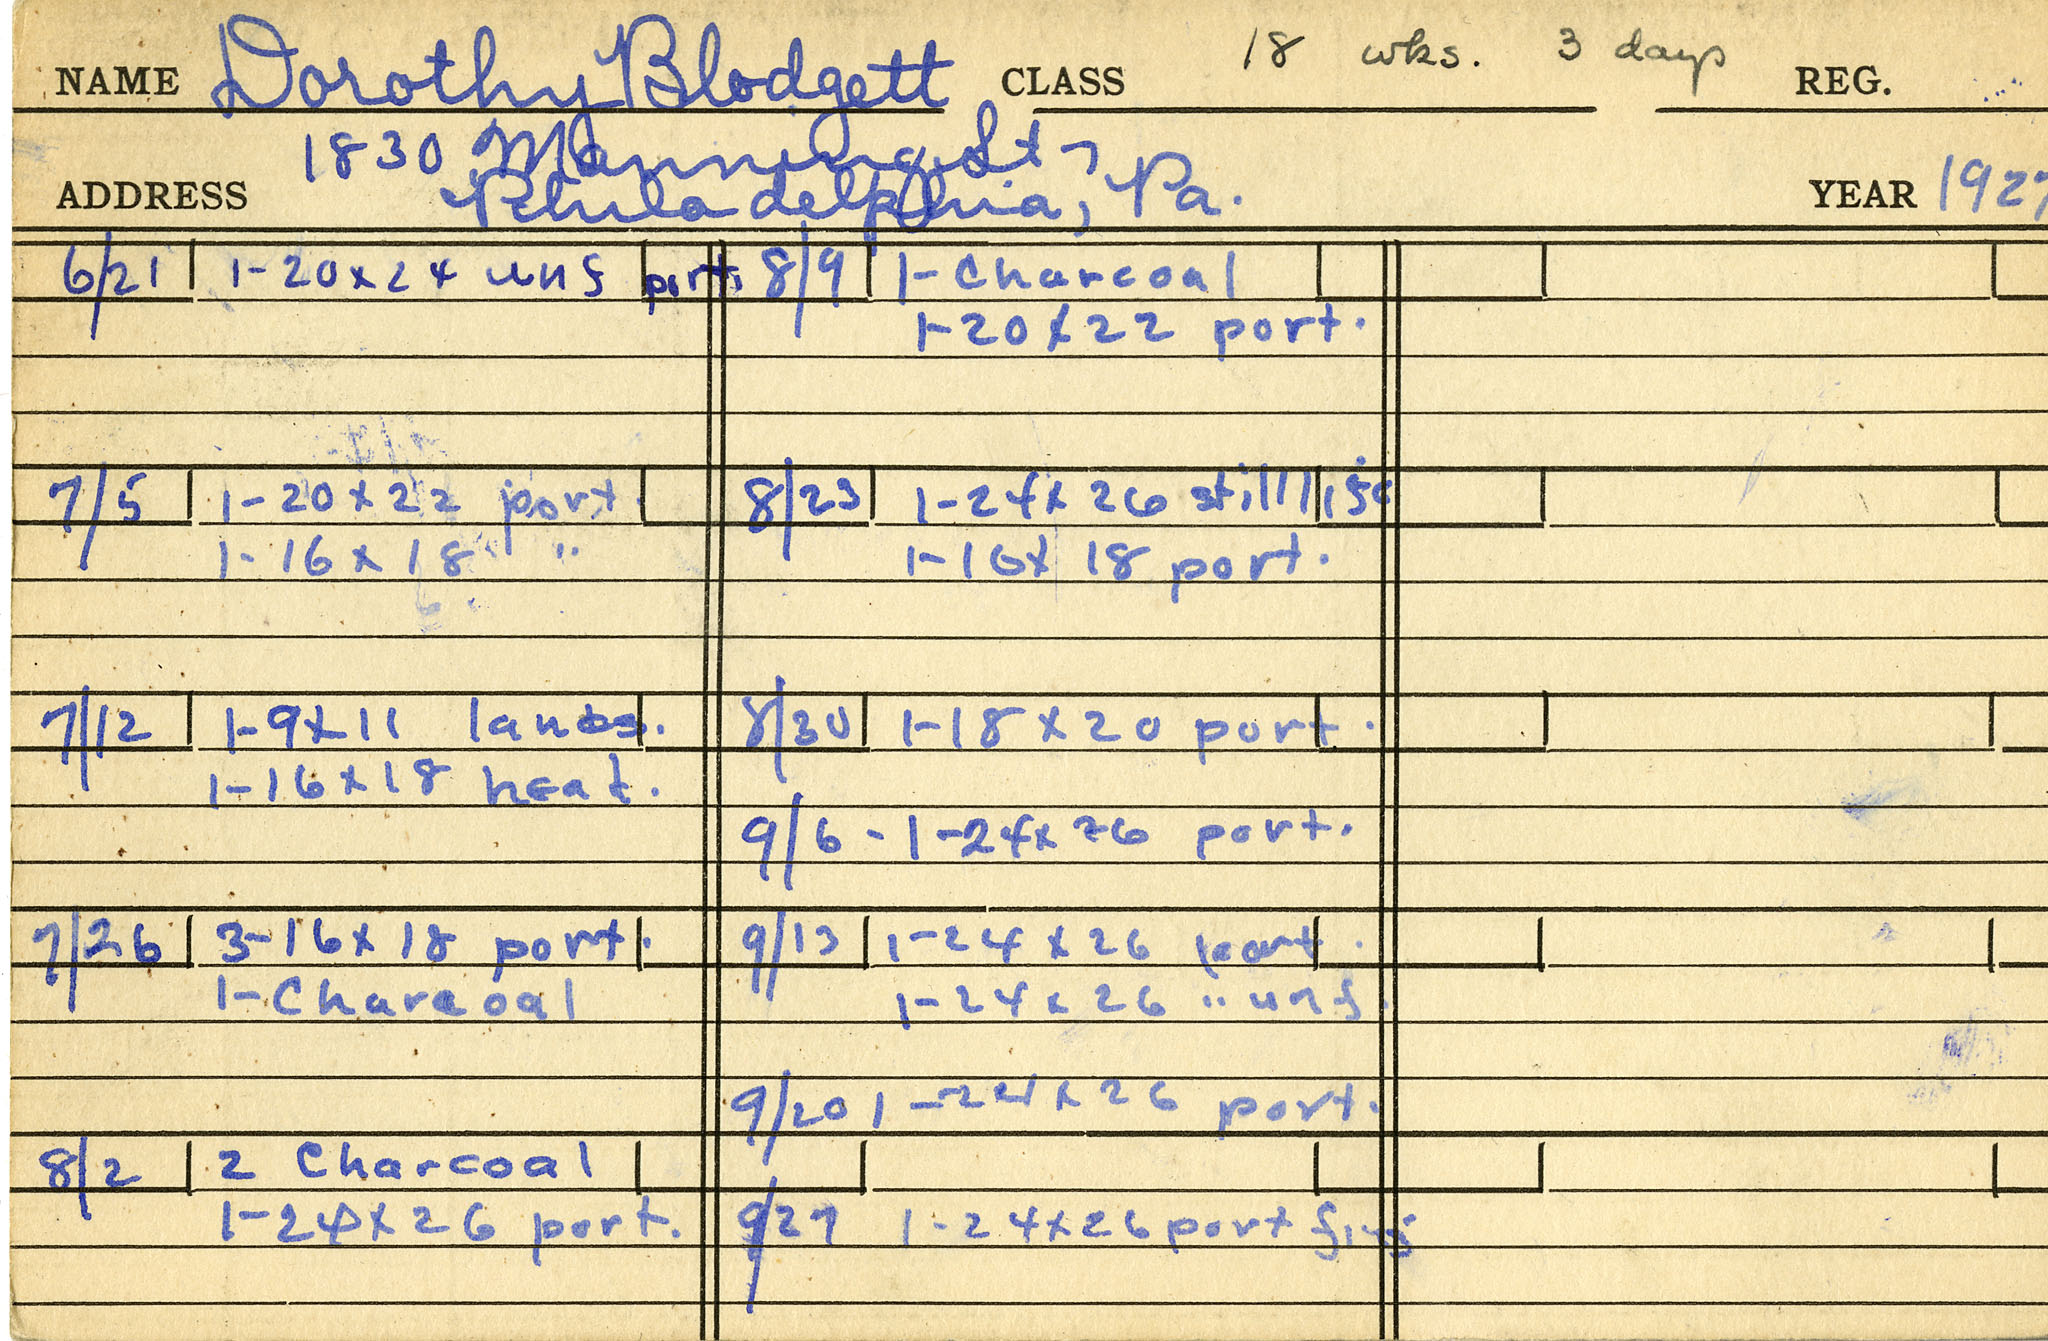 NAME Dorothy Blodgett CLASS 18 wks. 3 days REG.
1830 Manning St.,
ADDRESS Philadelphia, Pa. YEAR 1927
6/21 1-20x24 unf port.
7/5 1-20x22 port.
1-16x18 "
7/12 1-9x11 lands.
1-16x18 heat.
7/26 3-16x18 port.
1-Charcoal
8/2 2 Charcoal
1-24x26 port.
8/9 1-Charcoal
1-20x22 port.
8/23 1-24x26 still life
1-16x18 port.
8/30 1-18x20 port.
9/6-1-24x26 port.
9/13 1-24x26 port.
1-24x26 " unf.
9/20 1-24x26 port.
9/27 1-24x26 port